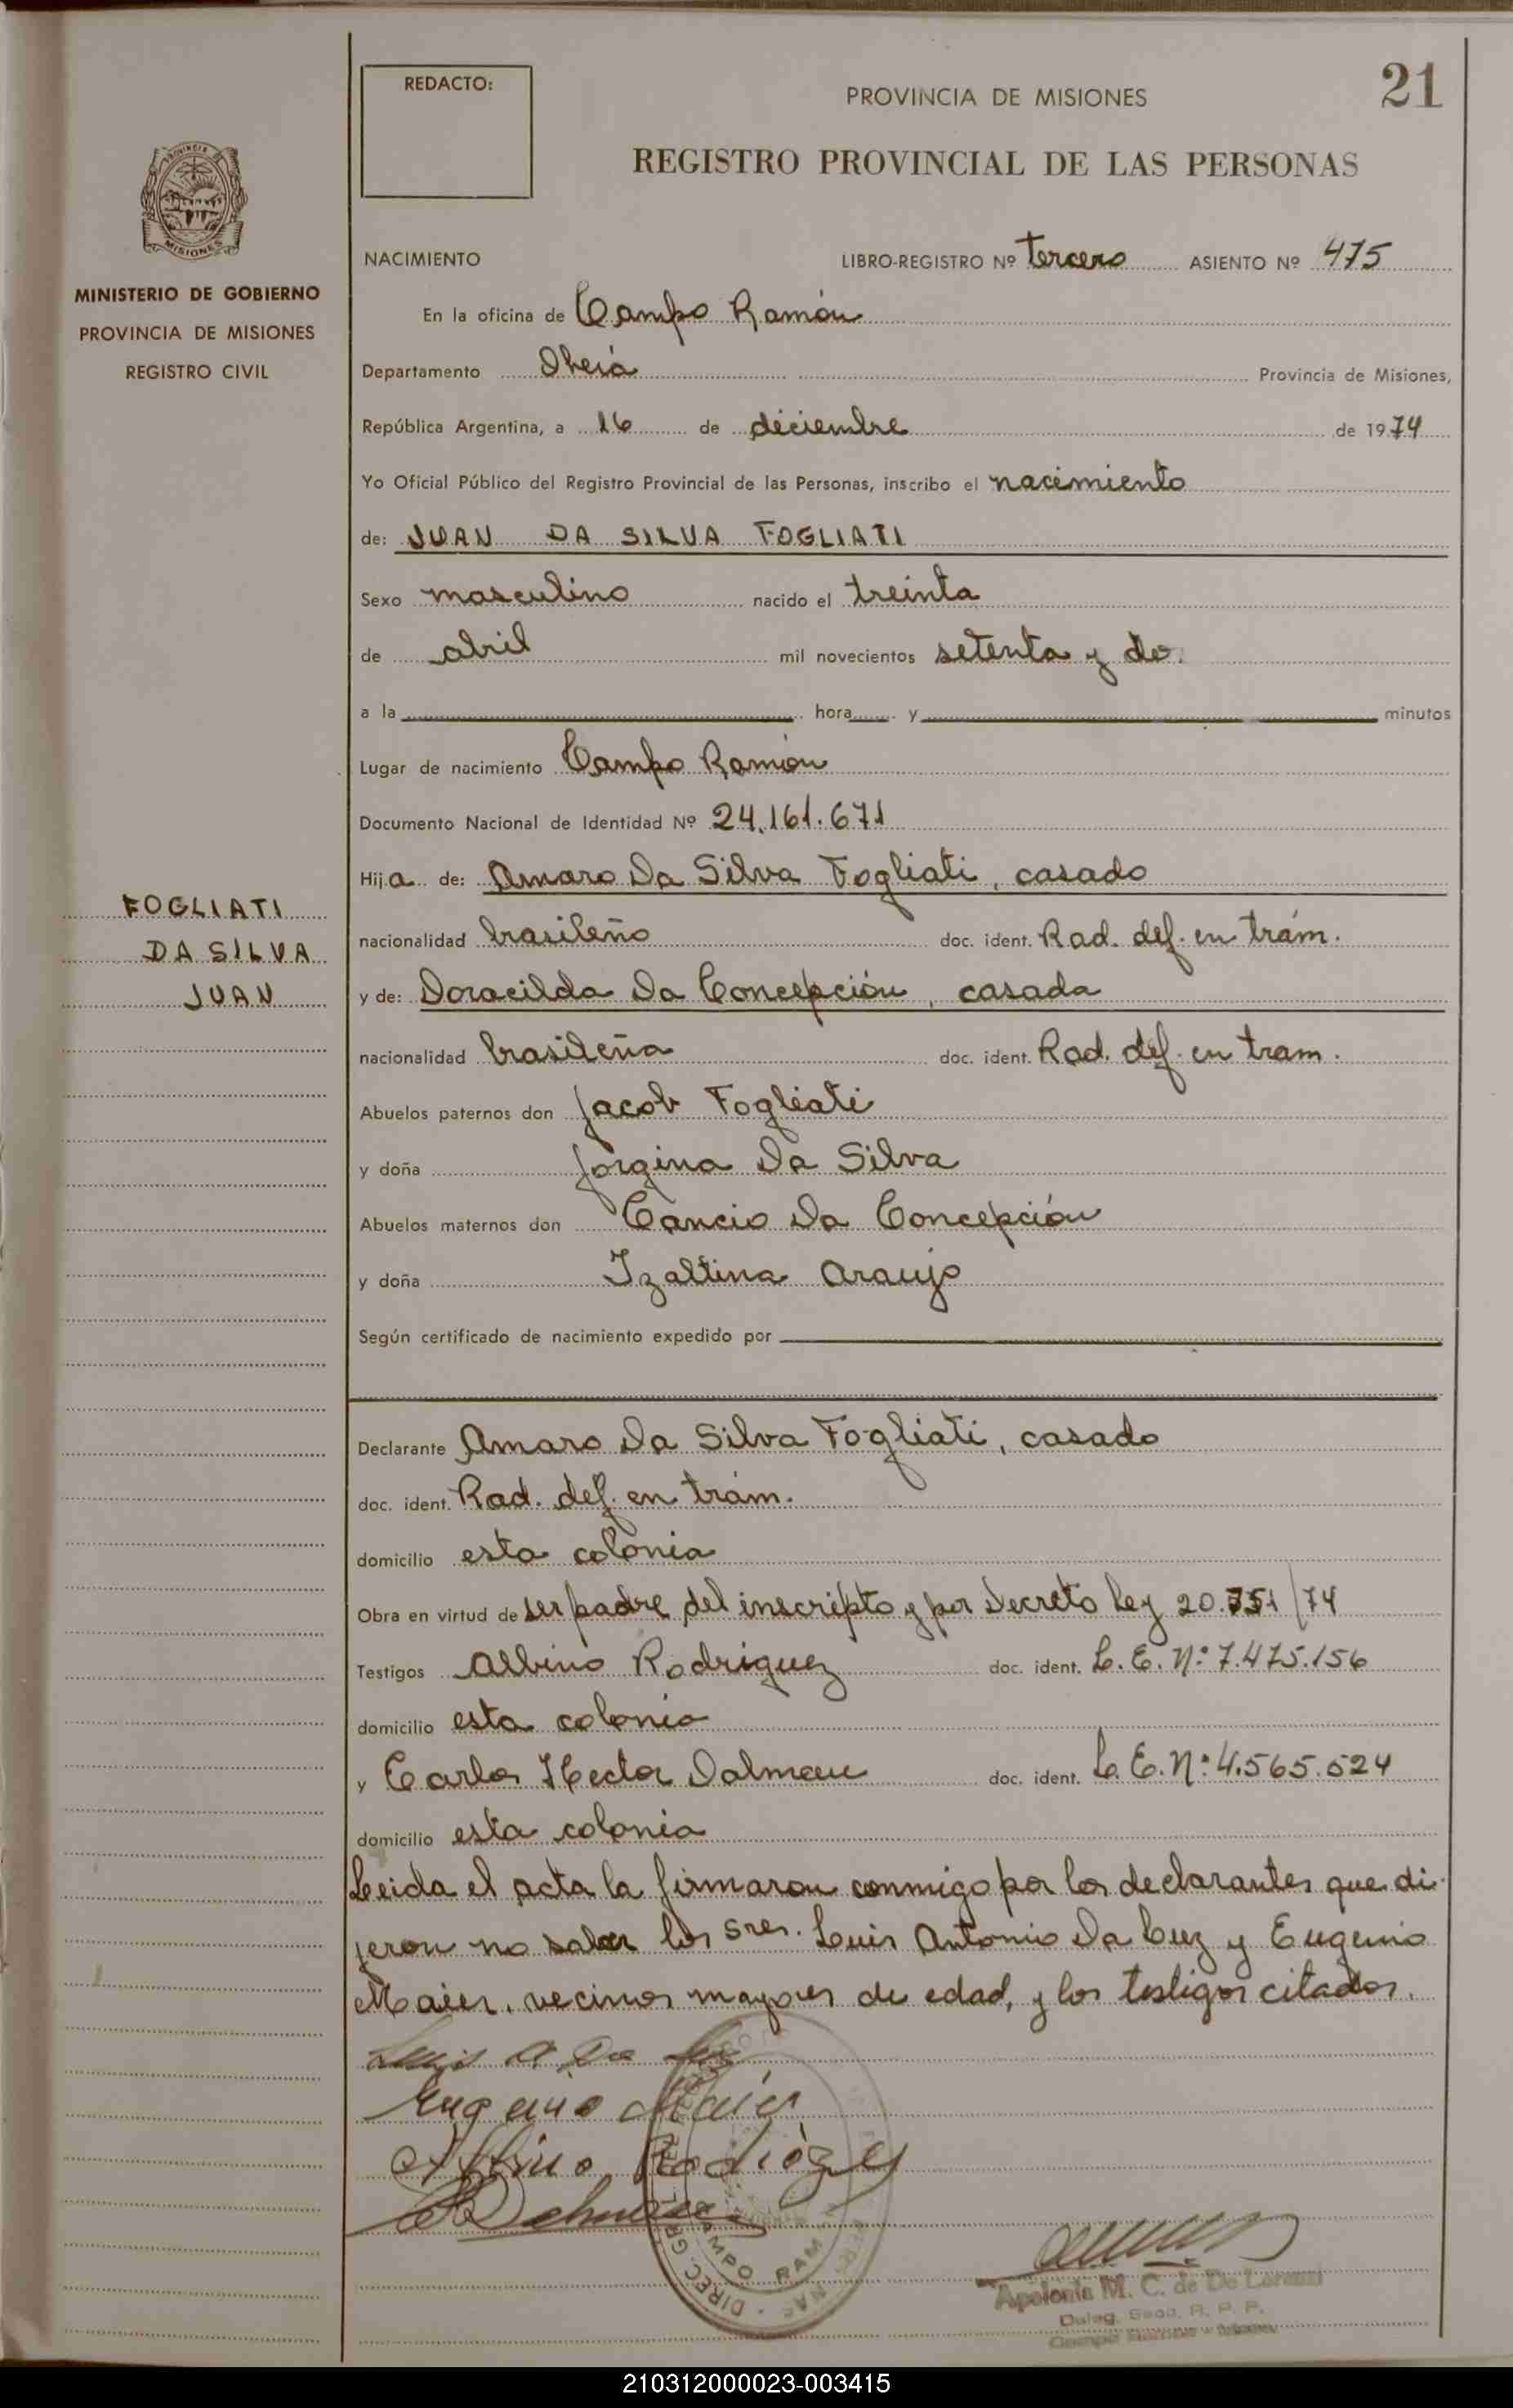 REDACTO:
PROVINCIA DE MISIONES
21
REGISTRO PROVINCIAL DE LAS PERSONAS
MISIONES
MINISTERIO DE GOBIERNO
PROVINCIA DE MISIONES
REGISTRO CIVIL
NACIMIENTO LIBRO-REGISTRO Nº Tercero ASIENTO Nº 475
En la oficina de Campo Ramón
Departamento Oberá Provincia de Misiones,
República Argentina, a 16 de diciembre de 1974
Yo Oficial Público del Registro Provincial de las Personas, inscribo el nacimiento
de: JUAN DA SILVA FOGLIATI
Sexo masculino nacido el treinta
de abril mil novecientos setenta y dos
a la hora y minutos
Lugar de nacimiento Campo Ramón
Documento Nacional de Identidad Nº 24.161.671
Hija de: Amaro Da Silva Fogliati, casado
FOGLIATI
DA SILVA
JUAN
nacionalidad brasileño doc. ident. Rad. def. en trám.
y de: Doracilda Da Concepción, casada
nacionalidad brasileña doc. ident. Rad. def. en tram.
Abuelos paternos don Jacob Fogliati
y doña Jorgina Da Silva
Abuelos maternos don Cancio Da Concepción
y doña Izaltina Araujo
Según certificado de nacimiento expedido por
Declarante Amaro Da Silva Fogliati, casado
doc. ident. Rad. def. en trám.
domicilio esta colonia
Obra en virtud de ser padre del inscripto y por Decreto Ley 20.751/74
Testigos Albino Rodriguez doc. ident. L.E. Nº 7.475.156
domicilio esta colonia
y Carlos Hector Dalmau doc. ident. L.E. Nº 4.565.524
domicilio esta colonia
Leida el acta la firmaron conmigo por los declarantes que di-
jeron no saber los Sres. Luis Antonio Da Luz y Eugenio
Maier, vecinos mayores de edad, y los testigos citados.
Luis A Da Luz
Eugenio Maier
Albino Rodriguez
Apolonia M. C. de De Lorenzi
Deleg. Secc. R. P. P.
210312000023-003415